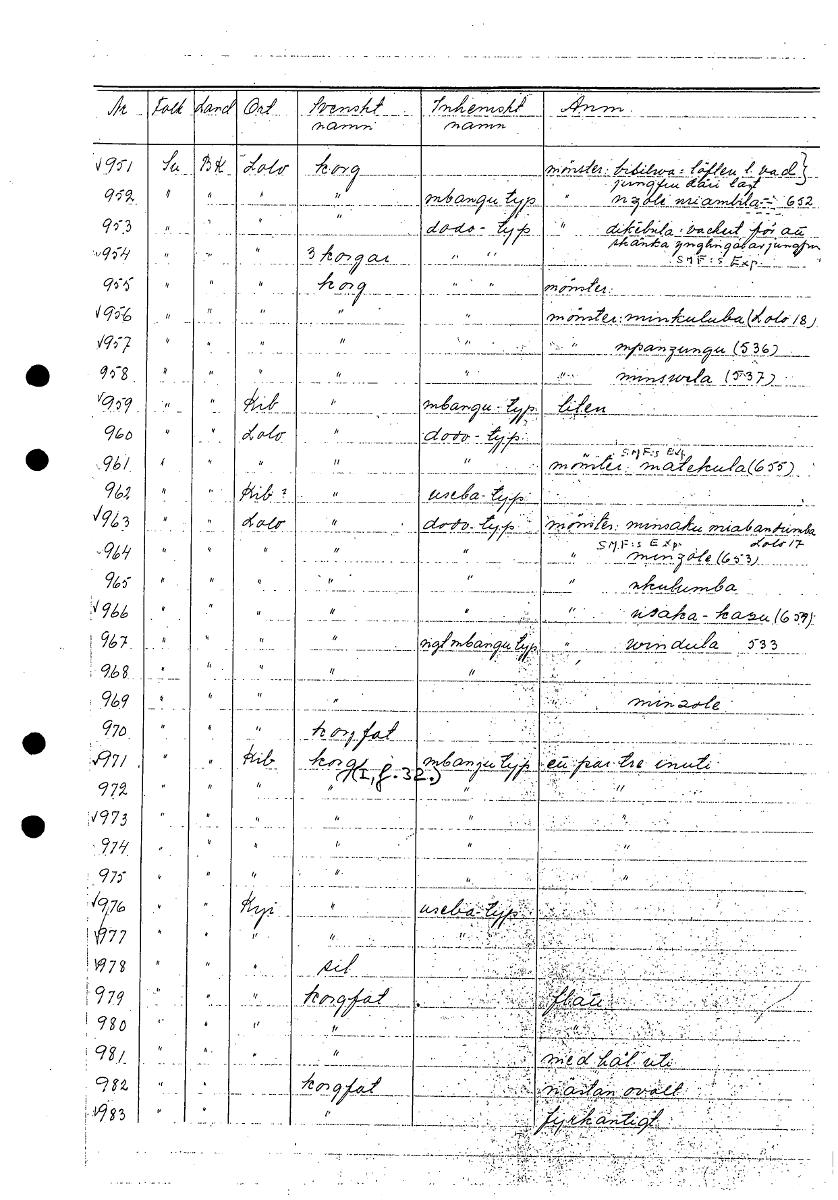 Nr Folk Land Ort Svenskt namn Inhemskt namn Anm.
√951 Su BK Lolo korg mönster: bibilwa = löften l. vad }
jungfru dari lagt
952 " " " " mbangu typ " nzole miambila = 652
953 " " " " dodo-typ " dikebula: vackert för att
skänka ynglingar jungfru
√954 " " " 3 korgar " " S.M.F:s Exp.
955 " " " korg " " mönster:
√956 " " " " " mönster: minkuluba (Lolo 18)
√957 " " " " " " " mpanzungu (536)
958 " " " " " " minswela (537)
√959 " " Kib " mbangu-typ liten
960 " " Lolo " dodo-typ
S.M.F:s Exp.
961 " " " " " mönster: matekula (655)
962 " " Kib? " useba-typ
√963 " " Lolo " dodo-typ mönster: minsaku miabandumba
S.M.F:s Exp. Lolo 17
964 " " " " " " minzole (653)
965 " " " " " " nkulumba
√966 " " " " " " nsaka-kazu (659)
967 " " " " ngt mbangu typ " windula 533
968 " " " " "
969 " " " " minzole
970 " " " korgfat
√971 " " Kib korg mbangu typ ett par tre inuti
(I, f. 32.)
972 " " " " " "
√973 " " " " " "
974 " " " " " "
975 " " " " " "
√976 " " Kyi " useba-typ
√977 " " " " "
√978 " " " sil
979 " " " korgfat flätt
980 " " " " "
981 " " " " med hål uti
982 " " korgfat nästan ovalt
√983 " " " fyrkantigt